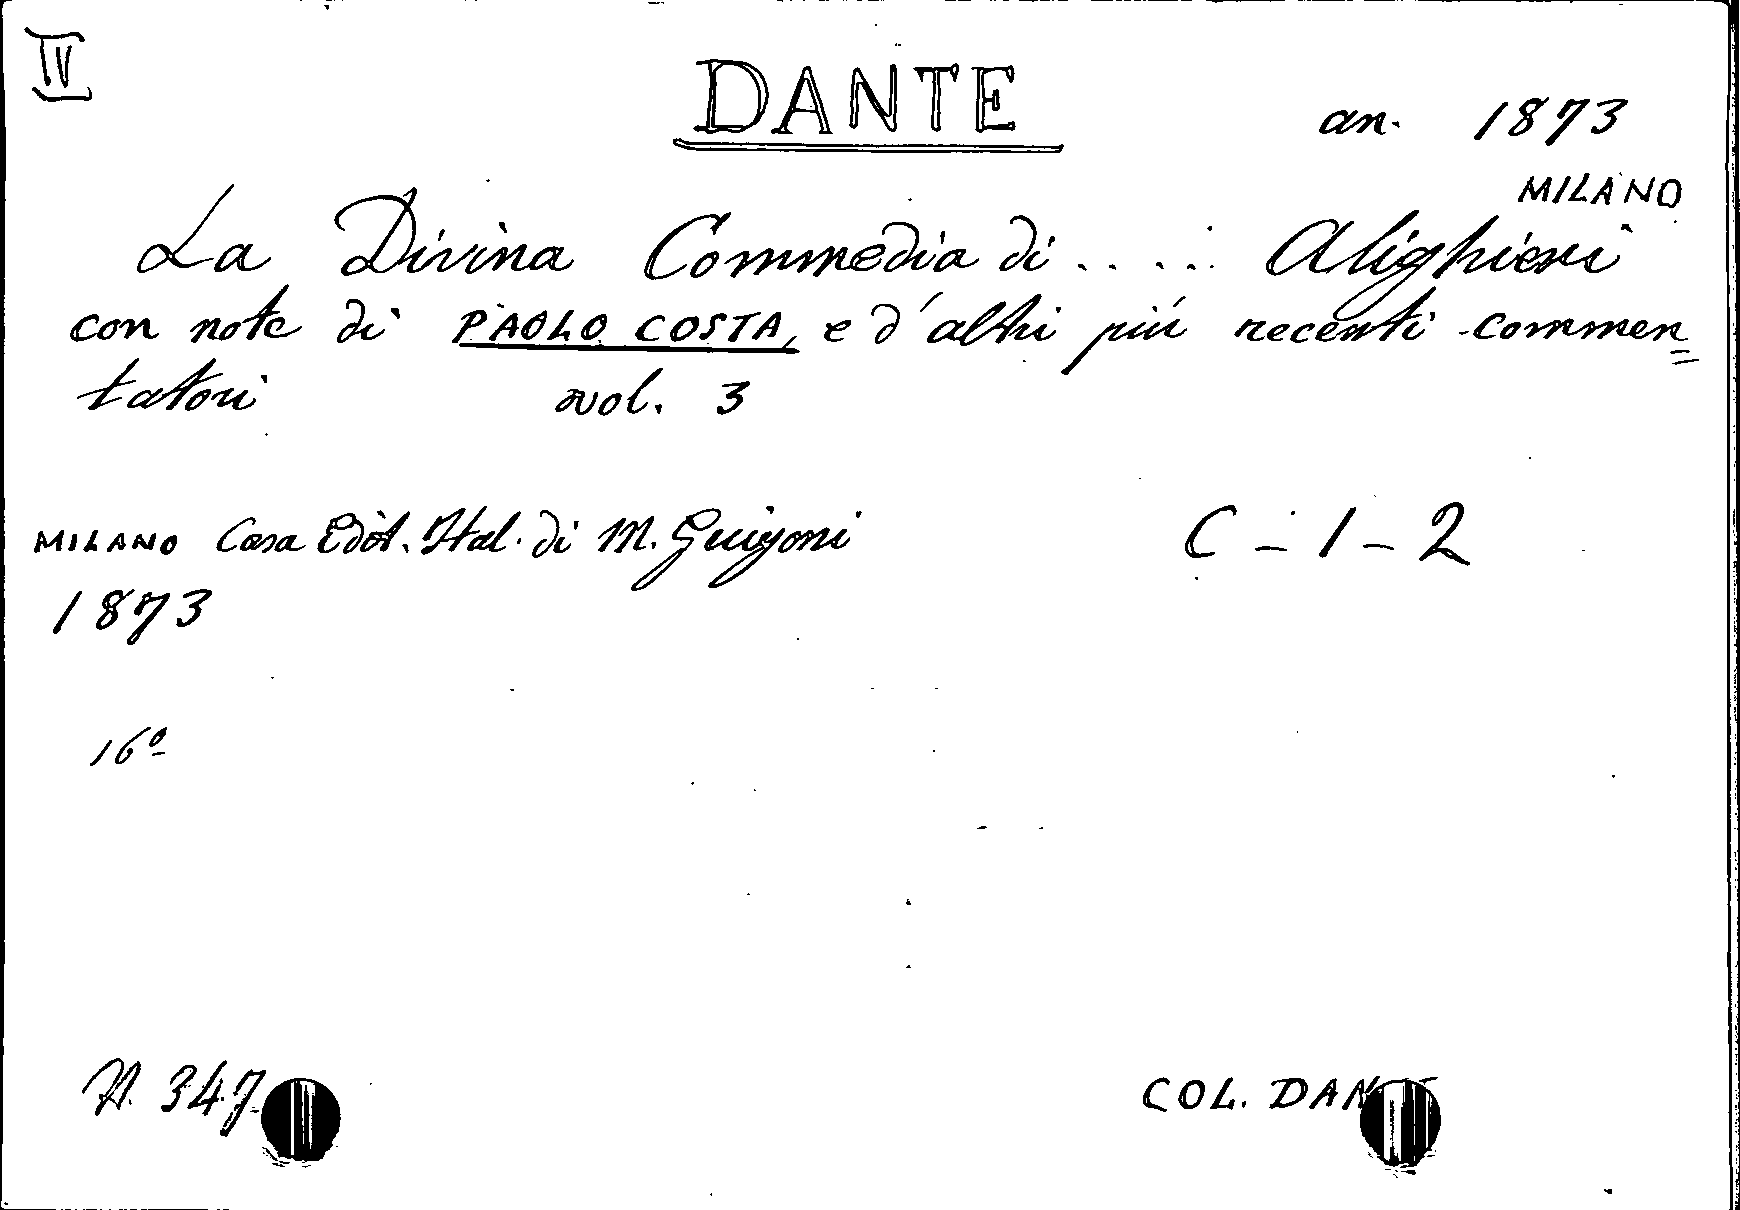 IV
DANTE
an. 1873
MILANO
La Divina Commedia di ..... Alighieri
con note di PAOLO COSTA, e d'altri piú recenti commen=
tatori vol. 3
MILANO Casa Edit. Ital. di M. Guigoni
C - 1 - 2
1873
16º
N. 347
COL. DAN